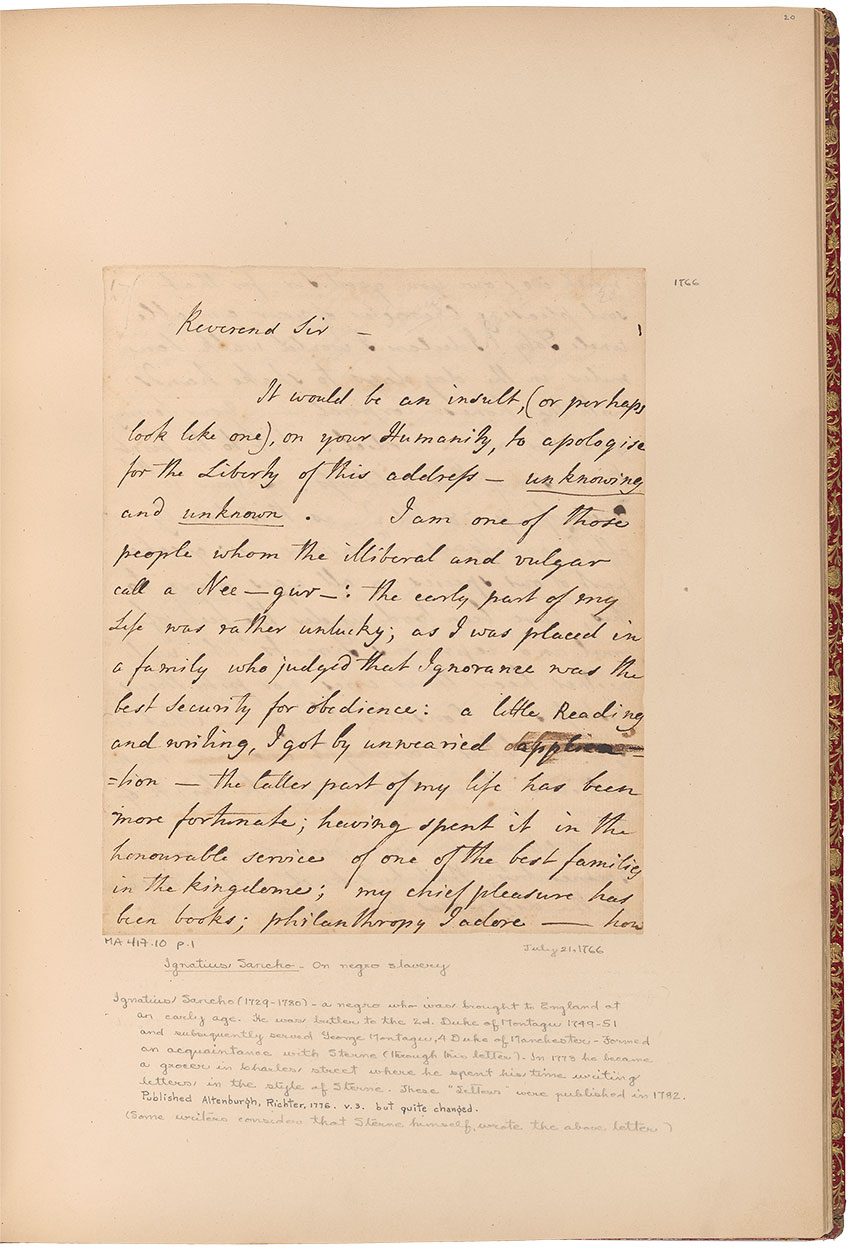 20
1766
Reverend Sir —
It would be an insult, (or perhaps
look like one), on your Humanity, to apologise
for the Liberty of this address — unknowing
and unknown . I am one of those
people whom the illiberal and vulgar
call a Nee—gur—: the early part of my
Life was rather unlucky; as I was placed in
a family who judged that Ignorance was the
best Security for obedience: a little Reading
and writing, I got by unwearied applica=
=tion — the latter part of my life has been
more fortunate; having spent it in the
honourable service of one of the best families
in the kingdome; my chief pleasure has
been books; philanthropy I adore — how
MA 417.10 p.1
July 21, 1766
Ignatius Sancho - On negro slavery
Ignatius Sancho (1729-1780) - a negro who was brought to England at
an early age. He was butler to the 2d. Duke of Montagu 1749-51
and subsequently served George Montagu, 4 Duke of Manchester - Formed
an acquaintance with Sterne (through this letter). In 1773 he became
a grocer in Charles street where he spent his time writing
letters in the style of Sterne. These "Letters" were published in 1782.
Published Altenburgh, Richter, 1776. v.3. but quite changed.
(Some writers consider that Sterne himself wrote the above letter)